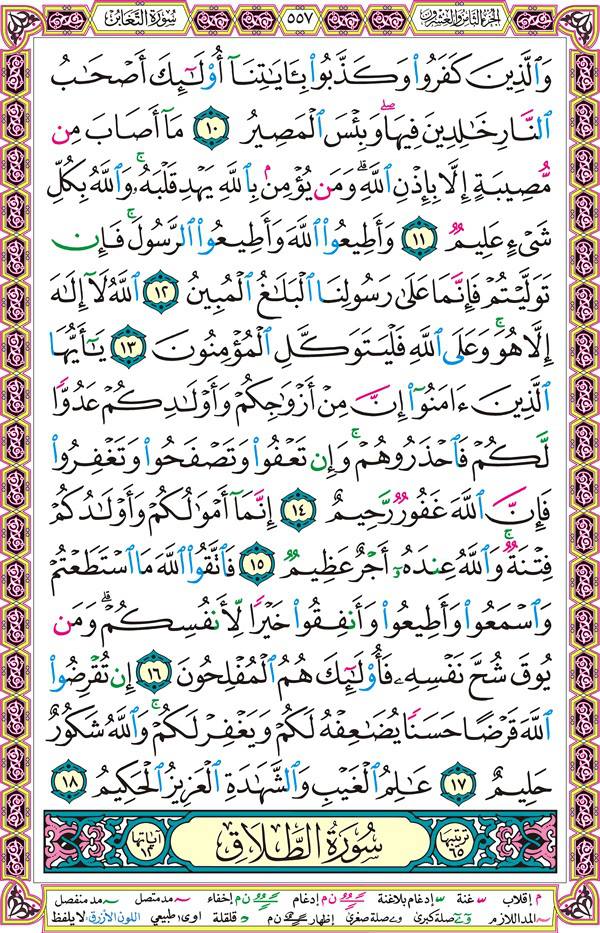 سُورَةُ التَّغَابُنِ
٥٥٧
الجزء الثامن والعشرون
وَٱلَّذِينَ كَفَرُواْ وَكَذَّبُواْ بِـَٔايَٰتِنَآ أُوْلَٰٓئِكَ أَصْحَٰبُ
ٱلنَّارِ خَٰلِدِينَ فِيهَاۖ وَبِئْسَ ٱلْمَصِيرُ ١٠ مَآ أَصَابَ مِن
مُّصِيبَةٍ إِلَّا بِإِذْنِ ٱللَّهِۗ وَمَن يُؤْمِنۢ بِٱللَّهِ يَهْدِ قَلْبَهُۥۚ وَٱللَّهُ بِكُلِّ
شَىْءٍ عَلِيمٌ ١١ وَأَطِيعُواْ ٱللَّهَ وَأَطِيعُواْ ٱلرَّسُولَۚ فَإِن
تَوَلَّيْتُمْ فَإِنَّمَا عَلَىٰ رَسُولِنَا ٱلْبَلَٰغُ ٱلْمُبِينُ ١٢ ٱللَّهُ لَآ إِلَٰهَ
إِلَّا هُوَۚ وَعَلَى ٱللَّهِ فَلْيَتَوَكَّلِ ٱلْمُؤْمِنُونَ ١٣ يَٰٓأَيُّهَا
ٱلَّذِينَ ءَامَنُوٓاْ إِنَّ مِنْ أَزْوَٰجِكُمْ وَأَوْلَٰدِكُمْ عَدُوًّا
لَّكُمْ فَٱحْذَرُوهُمْۚ وَإِن تَعْفُواْ وَتَصْفَحُواْ وَتَغْفِرُواْ
فَإِنَّ ٱللَّهَ غَفُورٌ رَّحِيمٌ ١٤ إِنَّمَآ أَمْوَٰلُكُمْ وَأَوْلَٰدُكُمْ
فِتْنَةٌۚ وَٱللَّهُ عِندَهُۥٓ أَجْرٌ عَظِيمٌ ١٥ فَٱتَّقُواْ ٱللَّهَ مَا ٱسْتَطَعْتُمْ
وَٱسْمَعُواْ وَأَطِيعُواْ وَأَنفِقُواْ خَيْرًا لِّأَنفُسِكُمْۗ وَمَن
يُوقَ شُحَّ نَفْسِهِۦ فَأُوْلَٰٓئِكَ هُمُ ٱلْمُفْلِحُونَ ١٦ إِن تُقْرِضُواْ
ٱللَّهَ قَرْضًا حَسَنًا يُضَٰعِفْهُ لَكُمْ وَيَغْفِرْ لَكُمْۚ وَٱللَّهُ شَكُورٌ
حَلِيمٌ ١٧ عَٰلِمُ ٱلْغَيْبِ وَٱلشَّهَٰدَةِ ٱلْعَزِيزُ ٱلْحَكِيمُ ١٨
ترتيبها ٦٥
سُورَةُ الطَّلَاقِ
آياتها ١٢
م إقلاب غنة إدغام بلاغنة ن م إدغام ن م إخفاء مد متصل مد منفصل
المد اللازم صلة كبرى صلة صغرى إظهار ن م قلقلة اوى طبيعي اللون الأزرق: لا يلفظ